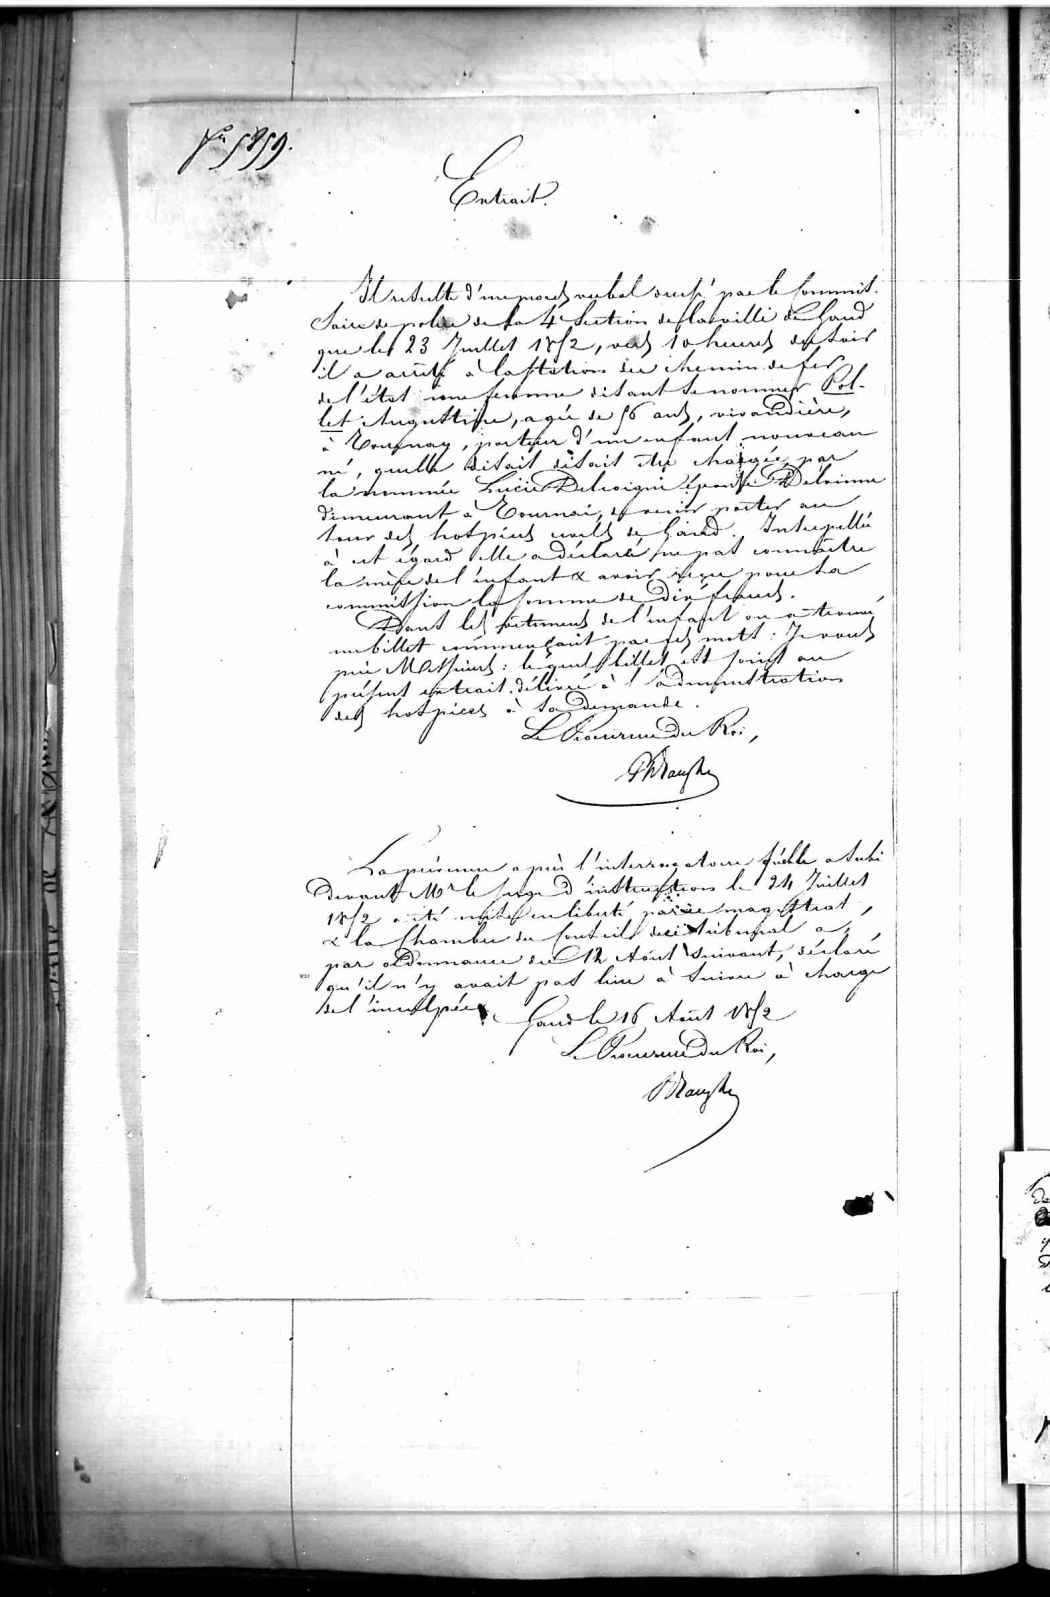 5959.
Extrait.
Il resulte d'un procès verbal dressé par le Commis-
saire de police de la 4e section de la ville de Gand
que le 23 Juillet 1852, vers 10 heures du soir
il a arrêté à la station du chemin de fer
de l'état une femme disant se nommer Pol-
let Augustine, agée de 56 ans, vivandière,
à Tournay, porteur d'un enfant nouveau
né, qu'elle disait être chargée par
la nommée Lucie épouse
demeurant à Tournai, de venir porter au
tour des hospices civils de Gand. Interpellée
à cet égard elle a déclaré ne pas connaître
la mère de l'enfant & avoir reçu pour sa
commission la somme de dix francs.
Dans les vêtements de l'enfant on a trouvé
un billet commençant par ces mots : Je vous
prie Messieurs : lequel billet est joint au
présent extrait délivré à l'administration
des hospices à sa demande.
Le Procureur du Roi,
La prévenue après l'interrogatoire qu'elle a subi
devant Mr le juge d'instruction le 24 Juillet
1852 a été mise en liberté par ce magistrat,
& la Chambre du Conseil du tribunal a,
par ordonnance du 12 Août suivant, déclaré
qu'il n'y avait pas lieu à suivre à charge
de l'inculpée.
Gand le 16 Août 1852
Le Procureur du Roi,